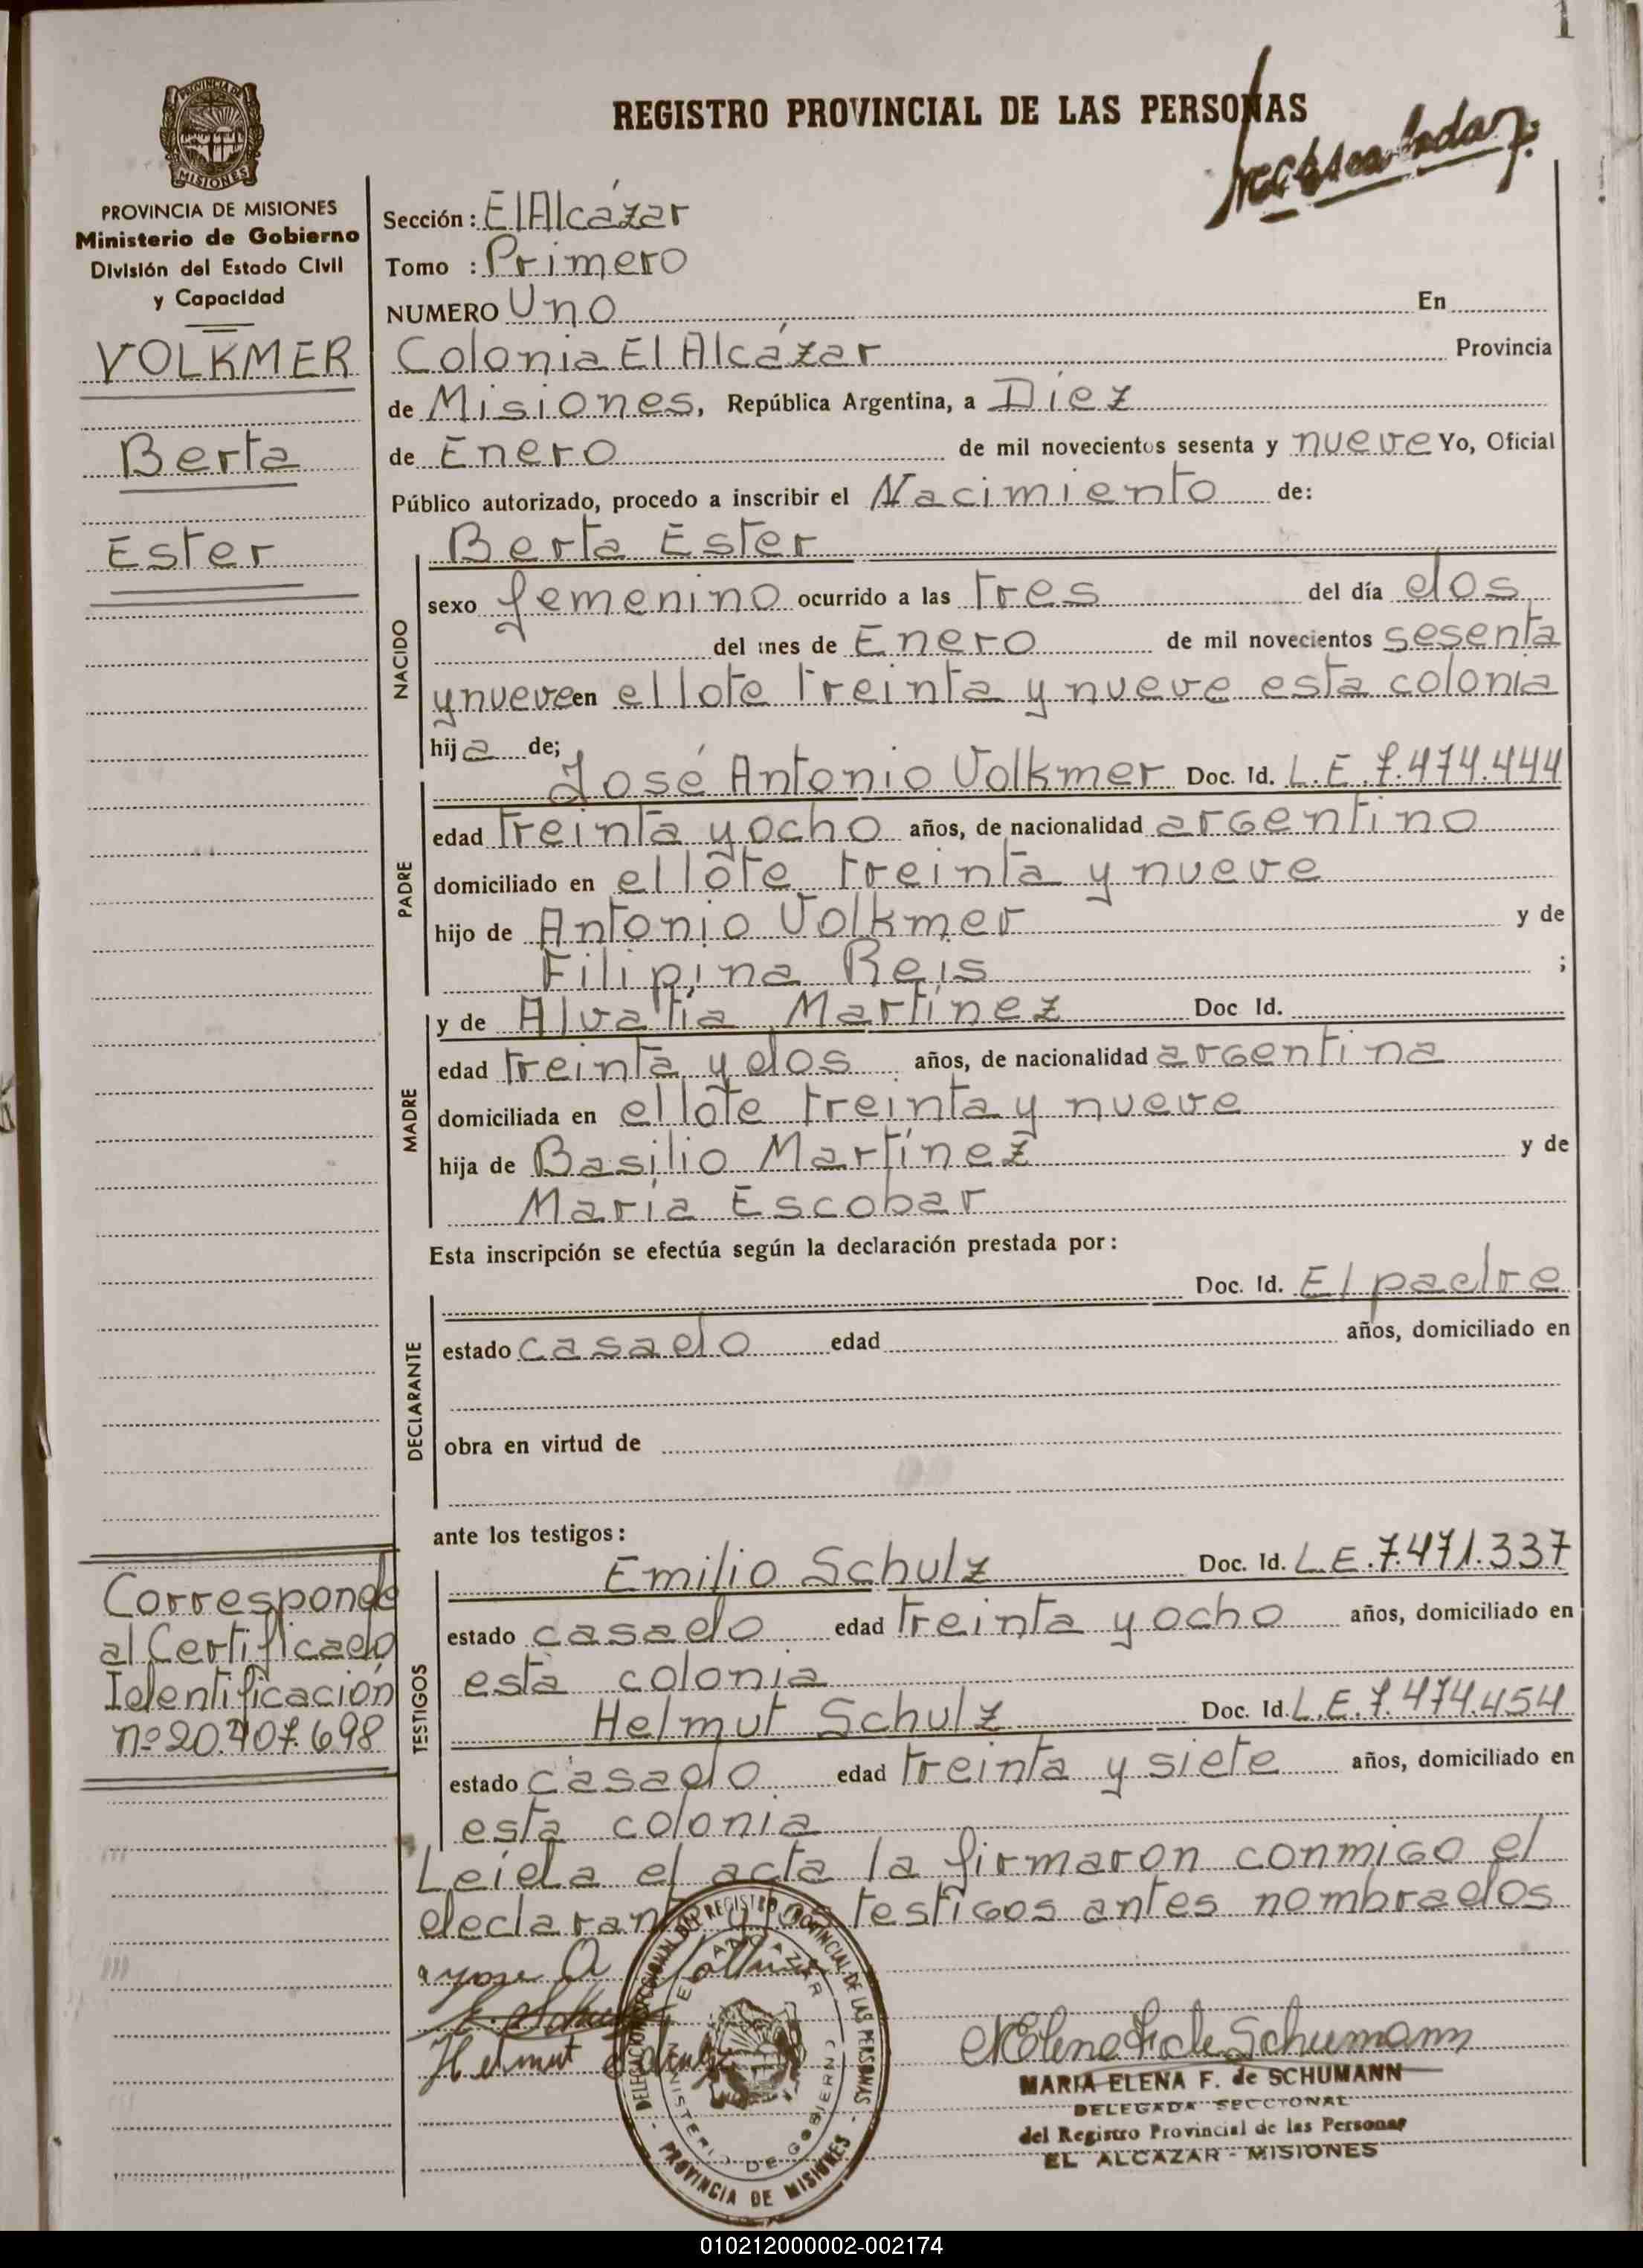 1
REGISTRO PROVINCIAL DE LAS PERSONAS
PROVINCIA DE MISIONES
Ministerio de Gobierno
División del Estado Civil
y Capacidad
VOLKMER
Berta
Ester
Sección: El Alcázar
Tomo : Primero
NUMERO Uno En
Colonia El Alcázar Provincia
de Misiones, República Argentina, a Diez
de Enero de mil novecientos sesenta y nueve Yo, Oficial
Público autorizado, procedo a inscribir el Nacimiento de:
Berta Ester
NACIDO
sexo femenino ocurrido a las tres del día dos
del mes de Enero de mil novecientos sesenta
y nueve en el lote treinta y nueve esta colonia
hija de;
PADRE
José Antonio Volkmer Doc. Id. L.E. 7.474.444
edad treinta y ocho años, de nacionalidad argentino
domiciliado en el lote treinta y nueve
hijo de Antonio Volkmer y de
Filipina Reis ;
MADRE
y de Alvatia Martínez Doc Id.
edad treinta y dos años, de nacionalidad argentina
domiciliada en el lote treinta y nueve
hija de Basilio Martínez y de
María Escobar
Esta inscripción se efectúa según la declaración prestada por:
DECLARANTE
Doc. Id. El padre
estado casado edad años, domiciliado en
obra en virtud de
ante los testigos:
TESTIGOS
Emilio Schulz Doc. Id. L.E. 7.471.337
estado casado edad treinta y ocho años, domiciliado en
esta colonia
Helmut Schulz Doc. Id. L.E. 7.474.454
estado casado edad treinta y siete años, domiciliado en
esta colonia
Corresponde
al Certificado
Identificación
nº 20.407.698
Leída el acta la firmaron conmigo el
declarante y los testigos antes nombrados
Helmut Schulz
DELEGACION SECCIONAL DEL REGISTRO PROVINCIAL DE LAS PERSONAS
EL ALCAZAR
MINISTERIO DE GOBIERNO
PROVINCIA DE MISIONES
MElena F. de Schumann
MARIA ELENA F. de SCHUMANN
DELEGADA SECCIONAL
del Registro Provincial de las Personas
EL ALCAZAR - MISIONES
010212000002-002174